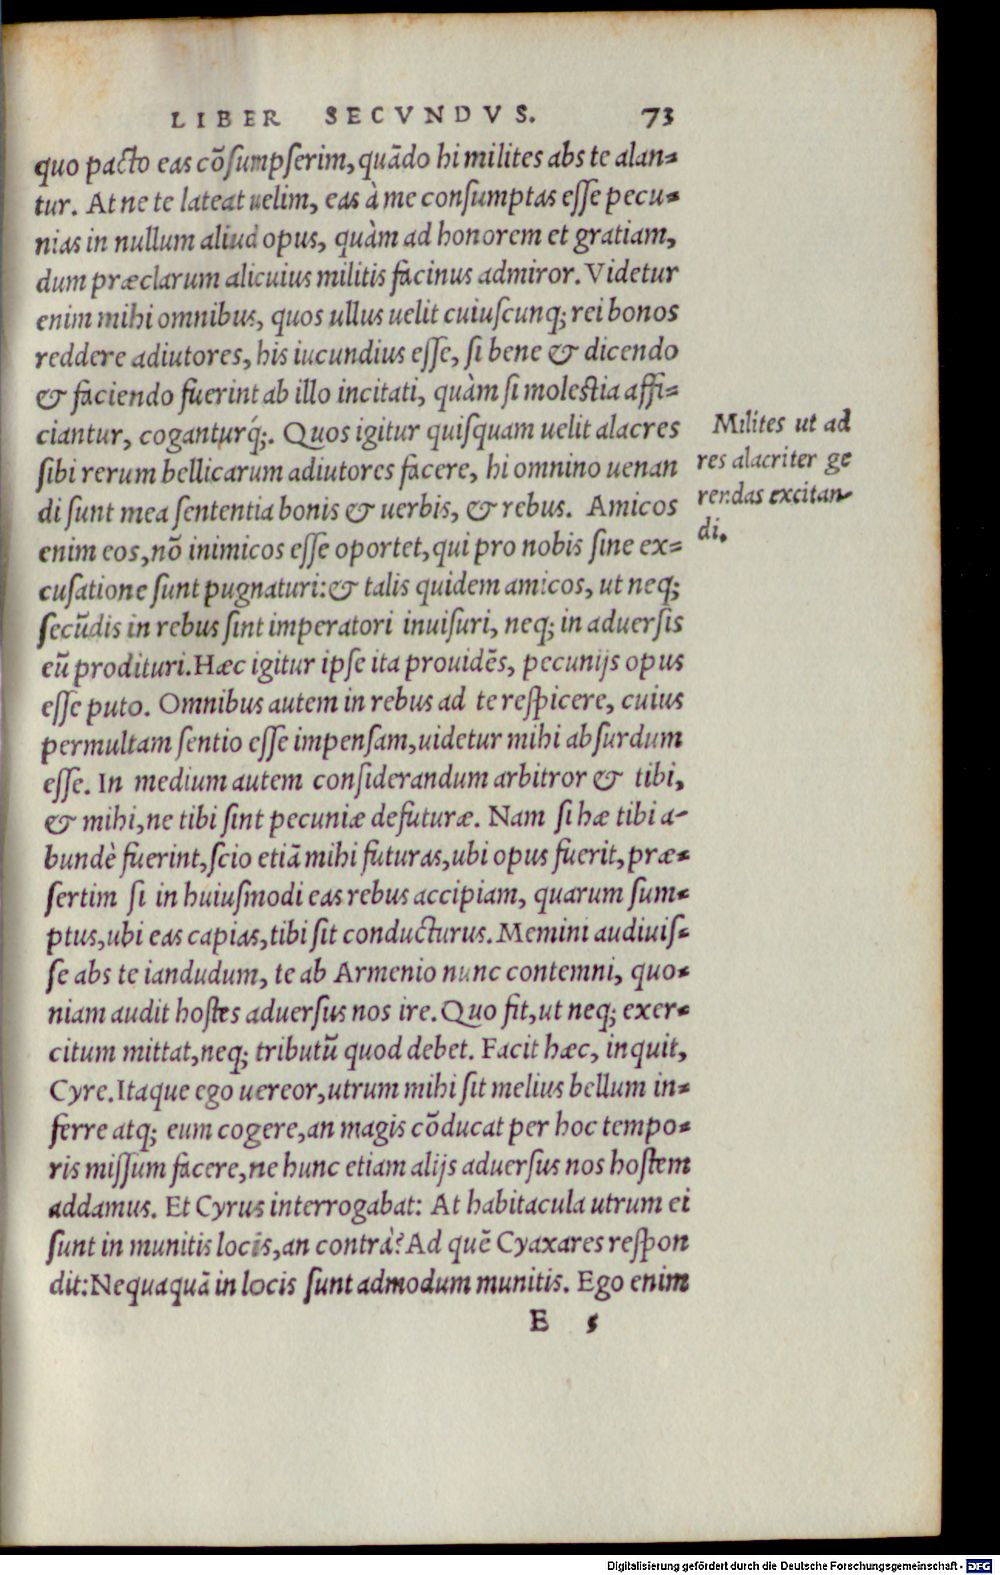 LIBER SECVNDVS. 73
quo pacto eas cõſumpſerim, quãdo hi milites abs te alan-
tur. At ne te lateat uelim, eas à me conſumptas eſſe pecu-
nias in nullum aliud opus, quàm ad honorem et gratiam,
dum præclarum alicuius militis facinus admiror. Videtur
enim mihi omnibus, quos ullus uelit cuiuſcunq; rei bonos
reddere adiutores, his iucundius eſſe, ſi bene & dicendo
& faciendo fuerint ab illo incitati, quàm ſi moleſtia affi-
ciantur, coganturq́;. Quos igitur quiſquam uelit alacres
ſibi rerum bellicarum adiutores facere, hi omnino uenan
di ſunt mea ſententia bonis & uerbis, & rebus. Amicos
enim eos, nõ inimicos eſſe oportet, qui pro nobis ſine ex-
cuſatione ſunt pugnaturi: & talis quidem amicos, ut neq;
ſecũdis in rebus ſint imperatori inuiſuri, neq; in aduerſis
eũ prodituri. Hæc igitur ipſe ita prouidẽs, pecunijs opus
eſſe puto. Omnibus autem in rebus ad te reſpicere, cuius
permultam ſentio eſſe impenſam, uidetur mihi abſurdum
eſſe. In medium autem conſiderandum arbitror & tibi,
& mihi, ne tibi ſint pecuniæ defuturæ. Nam ſi hæ tibi a-
bundè fuerint, ſcio etiã mihi futuras, ubi opus fuerit, præ-
ſertim ſi in huiuſmodi eas rebus accipiam, quarum ſum-
ptus, ubi eas capias, tibi ſit conducturus. Memini audiuiſ-
ſe abs te iandudum, te ab Armenio nunc contemni, quo-
niam audit hoſtes aduerſus nos ire. Quo fit, ut neq; exer-
citum mittat, neq; tributũ quod debet. Facit hæc, inquit,
Cyre. Itaque ego uereor, utrum mihi ſit melius bellum in-
ferre atq; eum cogere, an magis cõducat per hoc tempo-
ris miſſum facere, ne hunc etiam alijs aduerſus nos hoſtem
addamus. Et Cyrus interrogabat: At habitacula utrum ei
ſunt in munitis locis, an contrà? Ad quẽ Cyaxares reſpon
dit: Nequaquã in locis ſunt admodum munitis. Ego enim
E 5
Milites ut ad
res alacriter ge
rendas excitan-
di.
Digitalisierung gefördert durch die Deutsche Forschungsgemeinschaft - DFG